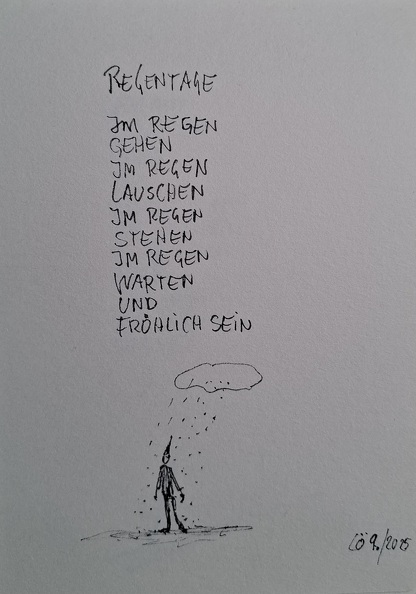 REGENTAGE
IM REGEN
GEHEN
IM REGEN
LAUSCHEN
IM REGEN
STEHEN
IM REGEN
WARTEN
UND
FRÖHLICH SEIN